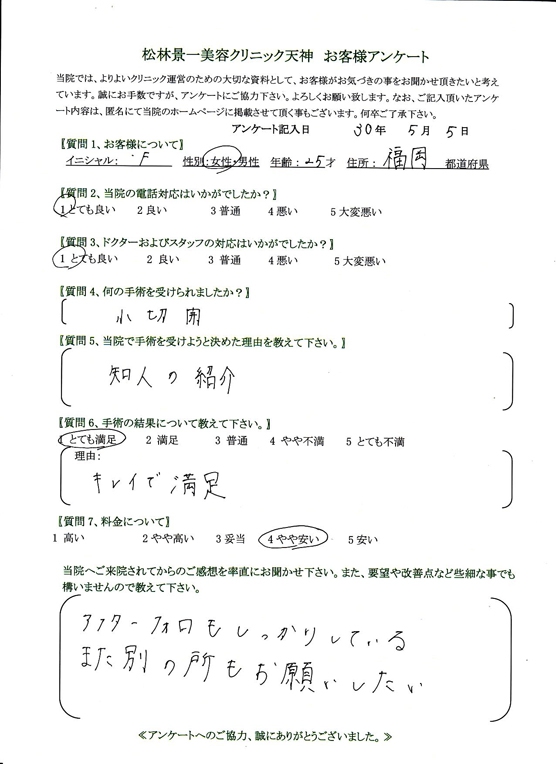 松林景一美容クリニック天神 お客様アンケート
当院では、よりよいクリニック運営のための大切な資料として、お客様がお気づきの事をお聞かせ頂きたいと考え
ています。誠にお手数ですが、アンケートにご協力下さい。よろしくお願い致します。なお、ご記入頂いたアンケ
ート内容は、匿名にて当院のホームページに掲載させて頂く事もございます。何卒ご了承下さい。
アンケート記入日 30年 5月 5日
〖質問1、お客様について〗
イニシャル: F 性別:女性・男性 年齢:25才 住所: 福岡 都道府県
〖質問2、当院の電話対応はいかがでしたか?〗
1とても良い 2良い 3普通 4悪い 5大変悪い
〖質問3、ドクターおよびスタッフの対応はいかがでしたか?〗
1とても良い 2良い 3普通 4悪い 5大変悪い
〖質問4、何の手術を受けられましたか?〗
小切開
〖質問5、当院で手術を受けようと決めた理由を教えて下さい。〗
知人の紹介
〖質問6、手術の結果について教えて下さい。〗
1とても満足 2満足 3普通 4やや不満 5とても不満
理由:
キレイで満足
〖質問7、料金について〗
1高い 2やや高い 3妥当 4やや安い 5安い
当院へご来院されてからのご感想を率直にお聞かせ下さい。また、要望や改善点など些細な事でも
構いませんので教えて下さい。
アフターフォロもしっかりしている
また別の所もお願いしたい
≪アンケートへのご協力、誠にありがとうございました。≫